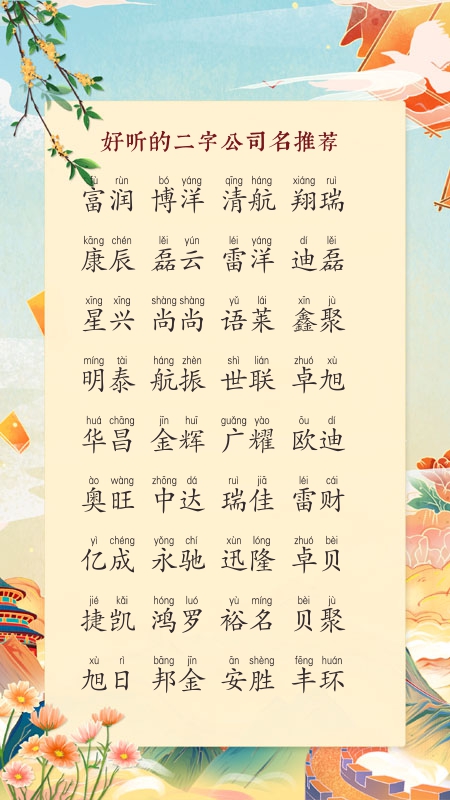 好听的二字公司名推荐
fù rùn bó yáng qīng háng xiáng ruì
富润 博洋 清航 翔瑞
kāng chén lěi yún léi yáng dí lěi
康辰 磊云 雷洋 迪磊
xīng xīng shàng shàng yǔ lái xīn jù
星兴 尚尚 语莱 鑫聚
míng tài háng zhèn shì lián zhuó xù
明泰 航振 世联 卓旭
huá chāng jīn huī guǎng yào ōu dí
华昌 金辉 广耀 欧迪
ào wàng zhōng dá ruì jiā léi cái
奥旺 中达 瑞佳 雷财
yì chéng yǒng chí xùn lóng zhuó bèi
亿成 永驰 迅隆 卓贝
jié kǎi hóng luó yù míng bèi jù
捷凯 鸿罗 裕名 贝聚
xù rì bāng jīn ān shèng fēng huán
旭日 邦金 安胜 丰环